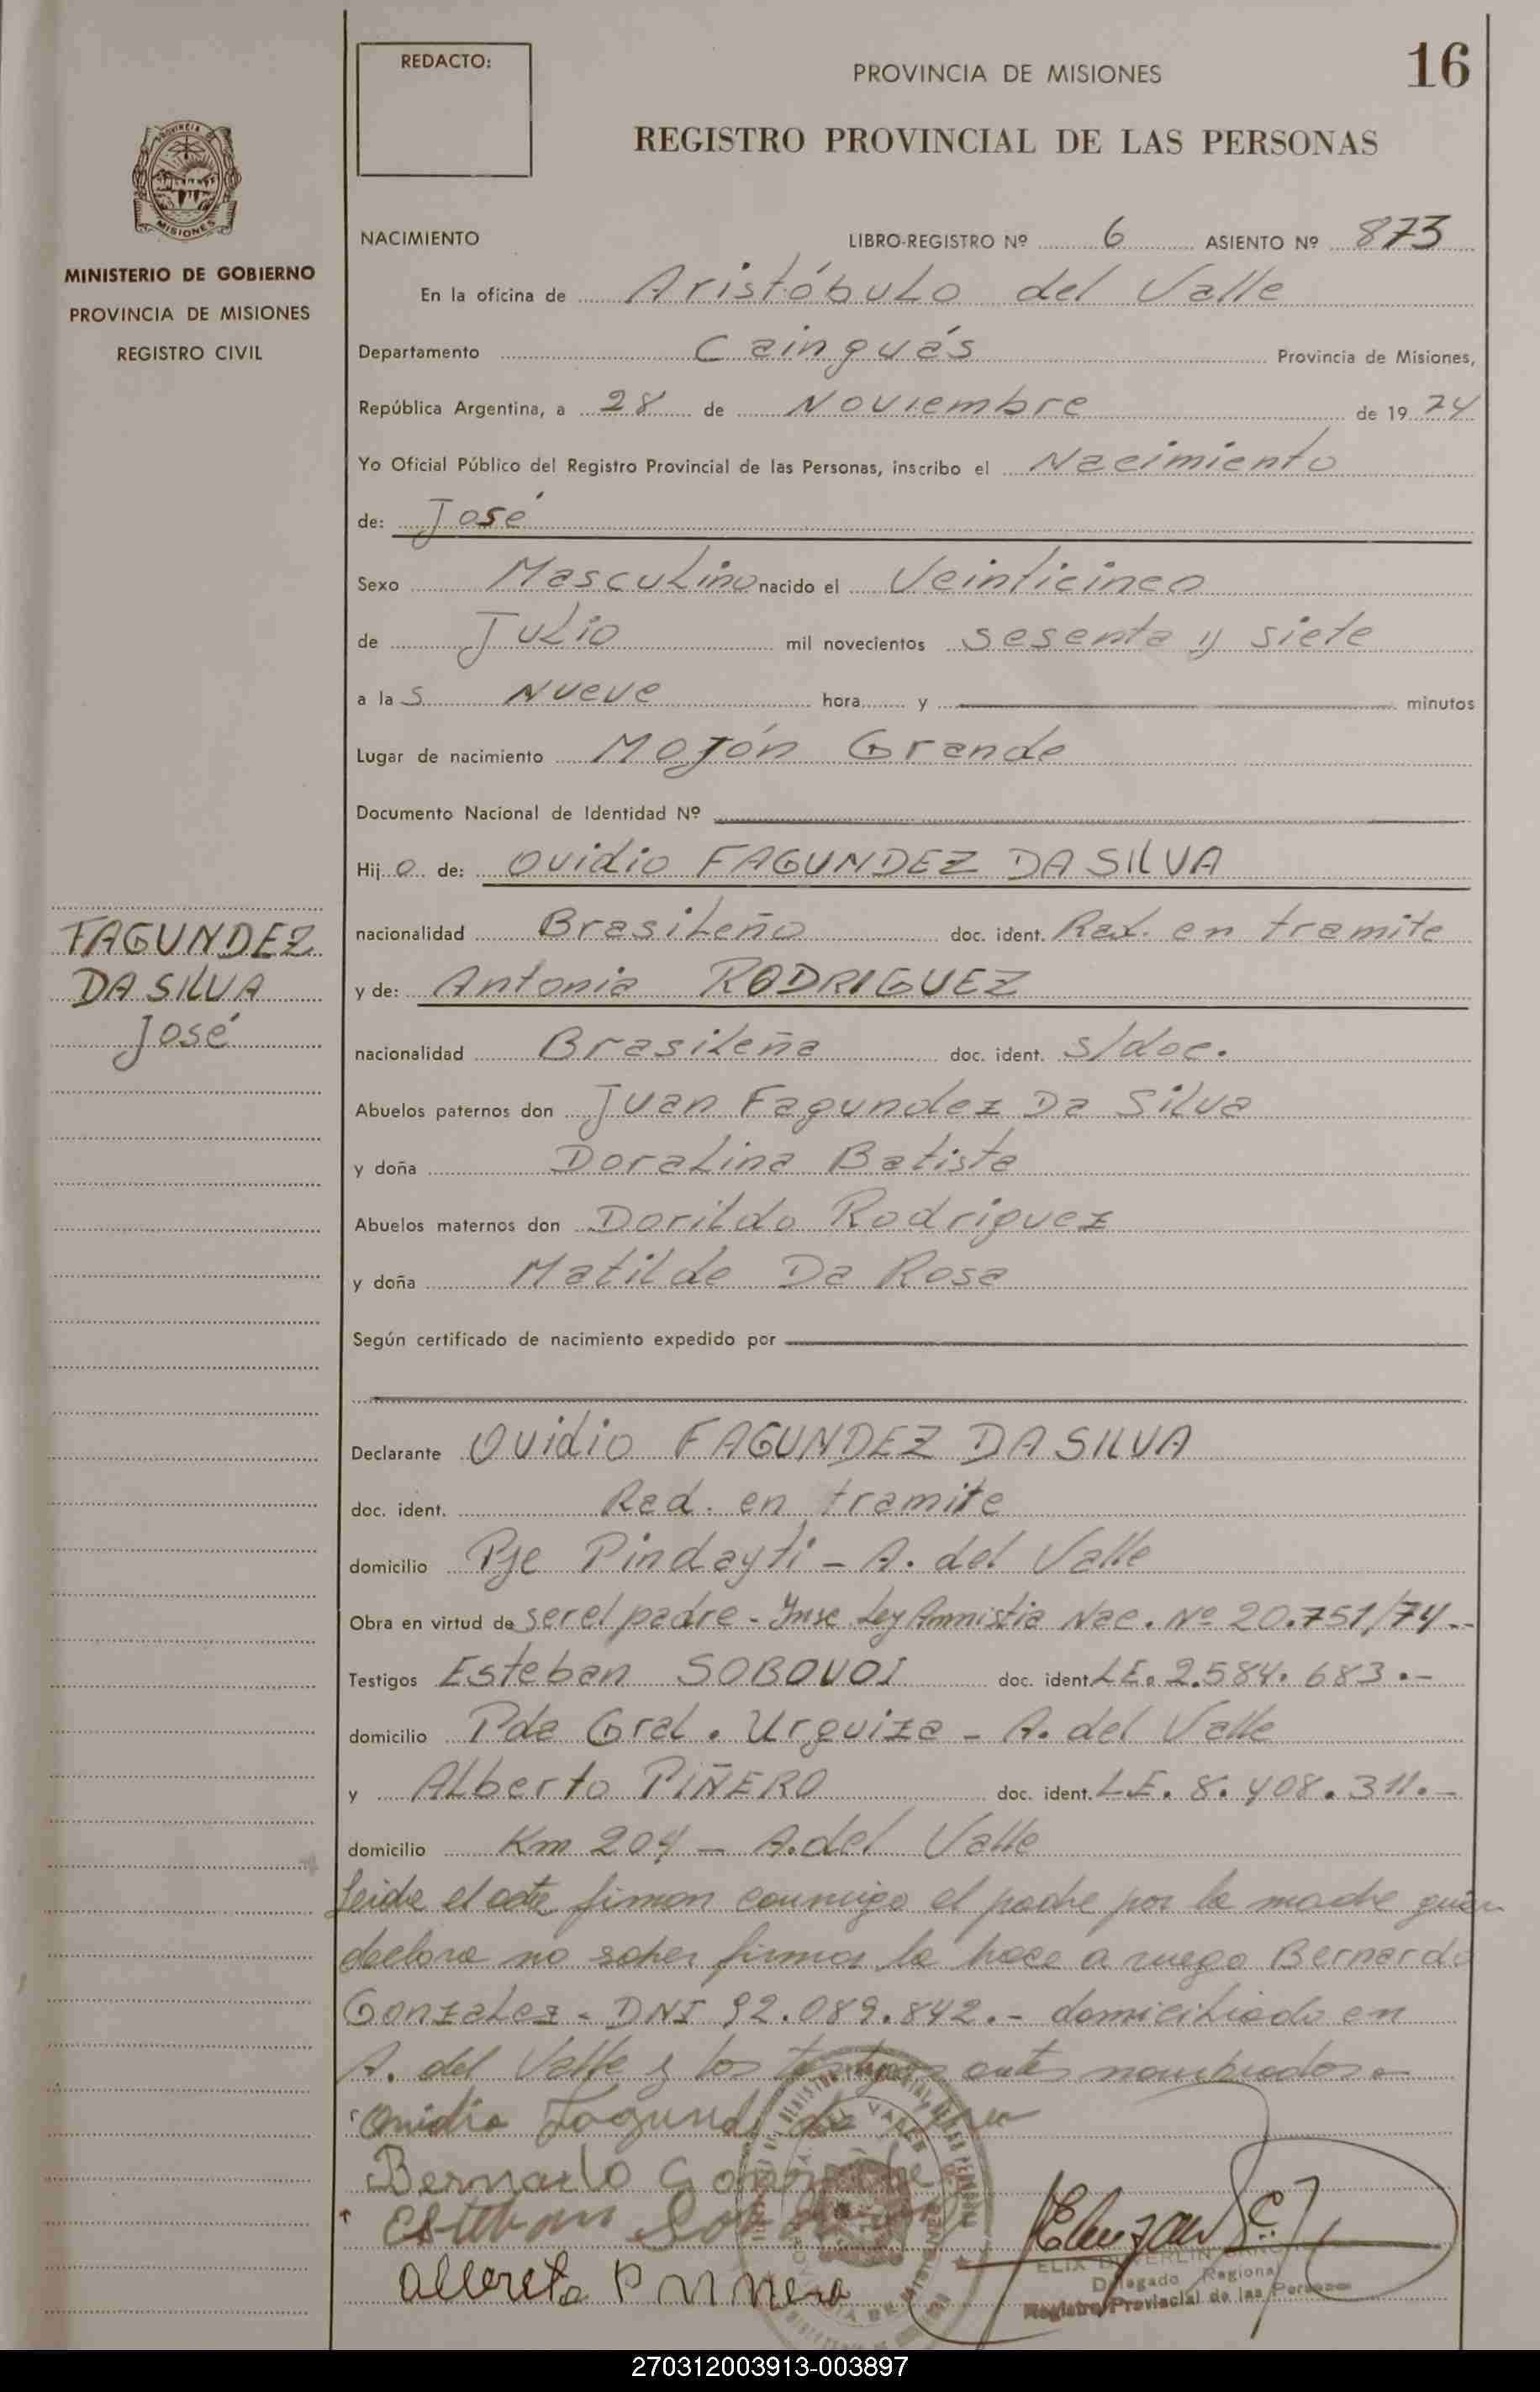 REDACTO:
PROVINCIA DE MISIONES
16
REGISTRO PROVINCIAL DE LAS PERSONAS
PROVINCIA
MISIONES
MINISTERIO DE GOBIERNO
PROVINCIA DE MISIONES
REGISTRO CIVIL
NACIMIENTO LIBRO-REGISTRO Nº 6 ASIENTO Nº 873
En la oficina de Aristóbulo del Valle
Departamento Cainguás Provincia de Misiones,
República Argentina, a 28 de Noviembre de 19 74
Yo Oficial Público del Registro Provincial de las Personas, inscribo el Nacimiento
de: José
Sexo Masculino nacido el Veinticinco
de Julio mil novecientos sesenta y siete
a la s Nueve hora y minutos
Lugar de nacimiento Mojón Grande
Documento Nacional de Identidad Nº
Hij o de: Ovidio FAGUNDEZ DA SILVA
nacionalidad Brasileño doc. ident. Rad. en tramite
y de: Antonia RODRIGUEZ
nacionalidad Brasileña doc. ident. s/doc.
Abuelos paternos don Juan Fagundez Da Silva
y doña Doralina Batista
Abuelos maternos don Dorildo Rodriguez
y doña Matilde Da Rosa
Según certificado de nacimiento expedido por
Declarante Ovidio FAGUNDEZ DA SILVA
doc. ident. Rad. en tramite
domicilio Pje Pindayti - A. del Valle
Obra en virtud de ser el padre - Insc. Ley Amnistia Nac. Nº 20.751/74.-
Testigos Esteban SOBOVOI doc. ident. L.E. 2.584.683.-
domicilio Pda Gral. Urquiza - A. del Valle
y Alberto PIÑERO doc. ident. L.E. 8.408.311.-
domicilio Km 204 - A. del Valle
Leida el acta firman conmigo el padre por la madre quien
declara no saber firmar lo hace a ruego Bernardo
Gonzalez - DNI 92.089.842.- domiciliado en
A. del Valle y los testigos antes nombrados.-
FAGUNDEZ
DA SILVA
José
Ovidio Fagundez da
Bernardo
Esteban
Alberto
Delegado Regional
Registro Provincial de las Personas
270312003913-003897